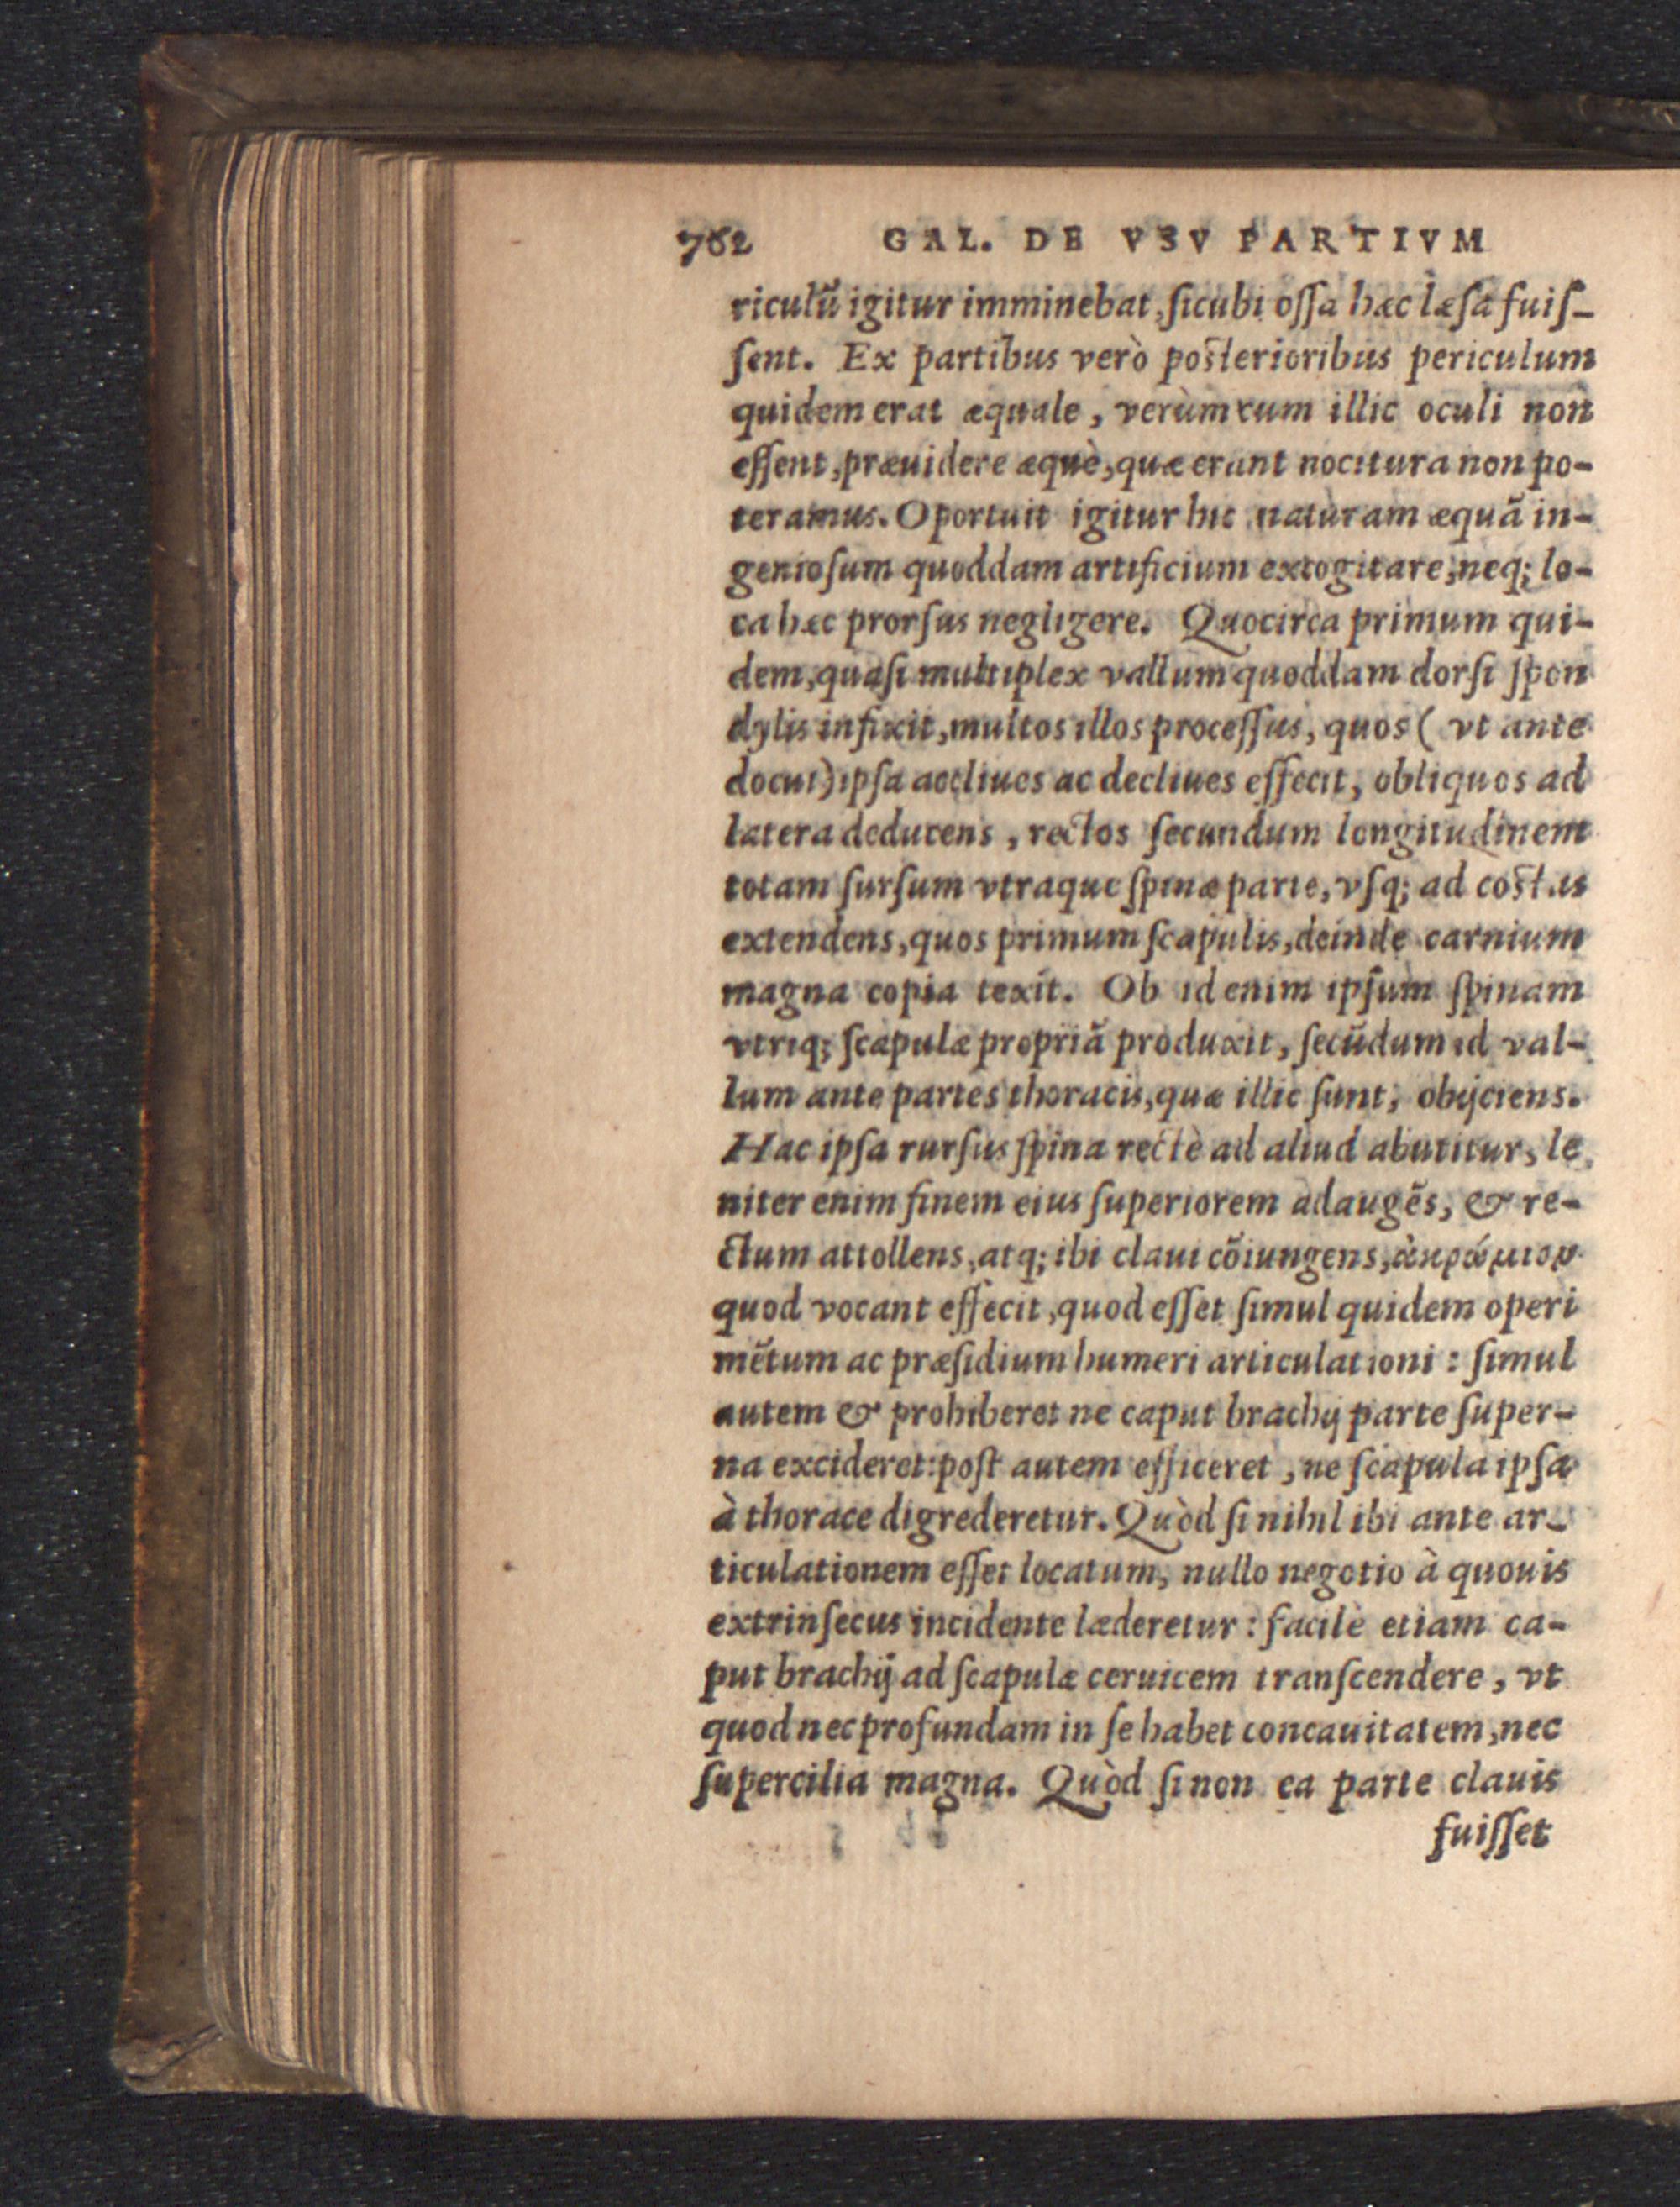 762 GAL. DE VSV PARTIVM
riculũ igitur imminebat, ſicubi oſſa hæc læſa fuiſ-
ſent. Ex partibus verò poſterioribus periculum
quidem erat æquale, verùm cum illic oculi non
eſſent, præuidere æquè, quæ erant nocitura non po-
teramus. Oportuit igitur hic naturam æquã in-
genioſum quoddam artificium excogitare, neq; lo-
ca hæc prorſus negligere. Quocirca primum qui-
dem, quaſi multiplex vallum quoddam dorſi ſpon
dylis infixit, multos illos proceſſus, quos ( vt ante
docui) ipſa accliues ac decliues effecit, obliquos ad
latera deducens, rectos ſecundum longitudinem
totam ſurſum vtraque ſpinæ parte, vſq; ad coſtas
extendens, quos primum ſcapulis, deinde carnium
magna copia texit. Ob id enim ipſum ſpinam
vtriq; ſcapulæ propriã produxit, ſecũdum id val-
lum ante partes thoracis, quæ illic ſunt, obijciens.
Hac ipſa rurſus ſpina rectè ad aliud abutitur, le
niter enim finem eius ſuperiorem adaugẽs, & re-
ctum attollens, atq; ibi claui cõiungens, ἀκρώμιον
quod vocant effecit, quod eſſet ſimul quidem operi
mẽtum ac præſidium humeri articulationi: ſimul
autem & prohiberet ne caput brachij parte ſuper-
na excideret: poſt autem efficeret, ne ſcapula ipſa
à thorace digrederetur. Quòd ſi nihil ibi ante ar-
ticulationem eſſet locatum, nullo negotio à quouis
extrinſecus incidente læderetur: facilè etiam ca-
put brachij ad ſcapulæ ceruicem tranſcendere, vt
quod nec profundam in ſe habet concauitatem, nec
ſupercilia magna. Quòd ſi non ea parte clauis
fuiſſet